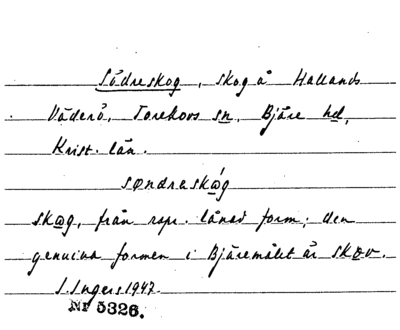 Södreskog, skog å Hallands
Väderö, Torekovs sn, Bjäre hd,
Krist. län.
søndraskǫ́g
skǫg, från rspr. lånad form; den
genuina formen i Bjäremålet är skǫv.
I. Ingers 1947.
Nr 5326.